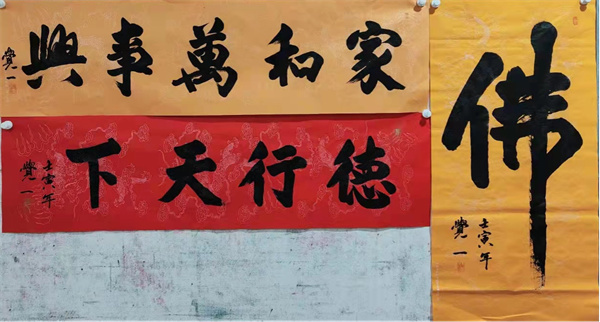 家和萬事興
覺一
德行天下
壬寅年
覺一
佛
壬寅年
覺一